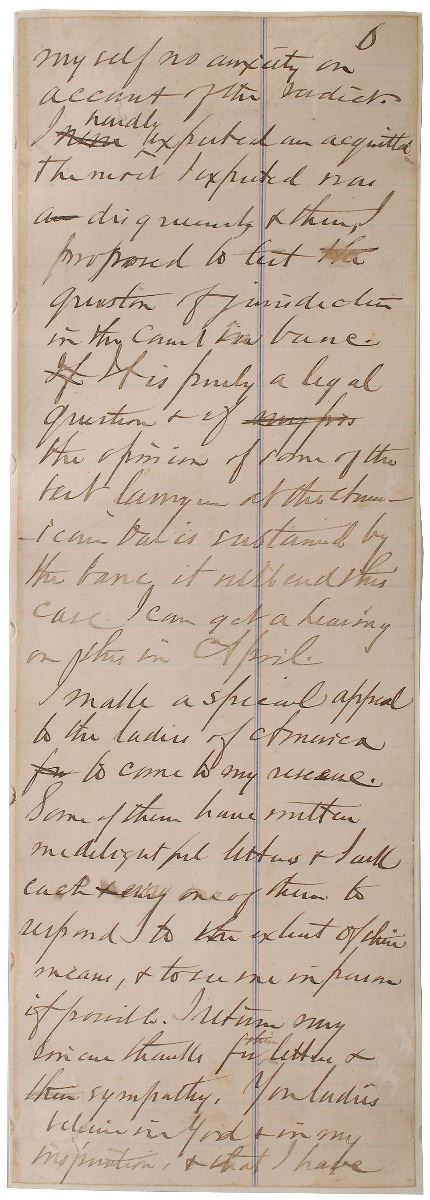 6
myself no anxiety on
account of the verdict.
hardly
I never expected an acquittal.
The most I expected was
a disagreement & then, I
proposed to test the
question of jurisdiction
in the Court in banc.
If It is purely a legal
question & if my pos
the opinion of some of the
best lawyers at the Amer-
-ican bar is sustained by
the banc, it will end this
case. I can get a hearing
on this in April.
I make a special appeal
to the ladies of America
for to come to my rescue.
Some of them have written
me delightful letters & I ask
each & every one of them to
respond to the extent of their
means, & to see me in person
if possible. I return my
sincere thanks for their letters &
their sympathy. You ladies
believe in God & in my
inspiration, & that I have